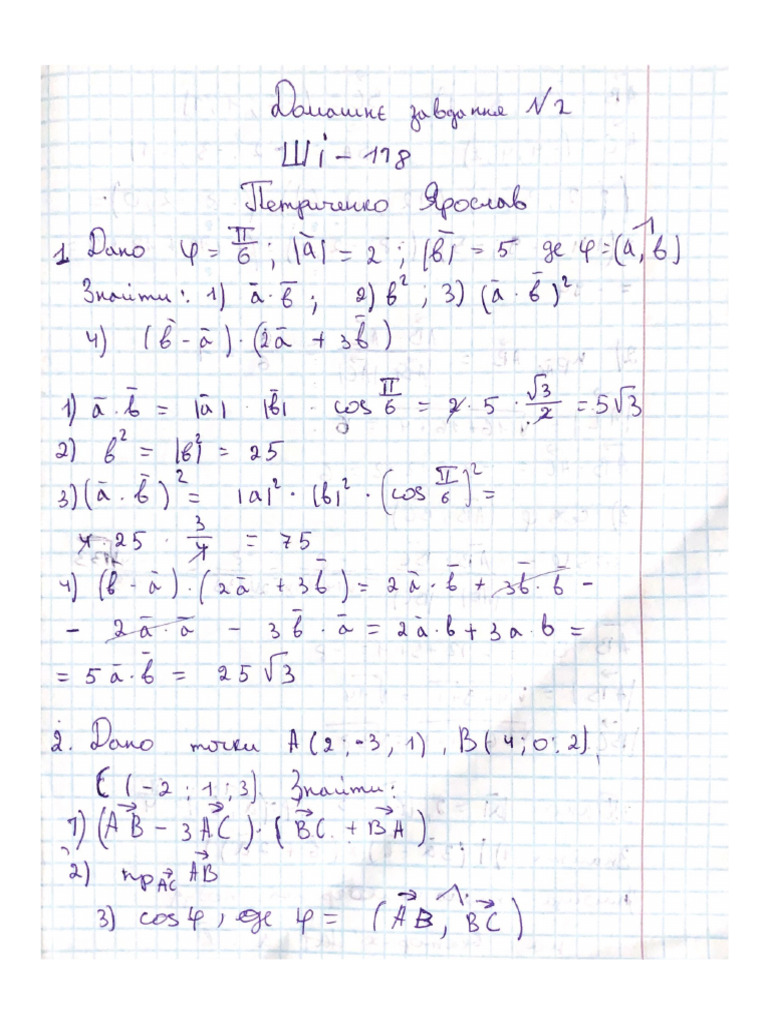 Домашнє завдання №2
ШІ - 118
Петриченко Ярослав
1. Дано φ = π/6 ; |a̅| = 2 ; |b̅| = 5 де φ = (a, b)
Знайти: 1) a̅ · b̅ ; 2) b² ; 3) (a̅ · b̅)²
4) (b̅ - a̅) · (2a̅ + 3b̅)
1) a̅ · b̅ = |a̅| · |b̅| · cos π/6 = 2 · 5 · √3/2 = 5√3
2) b² = |b²| = 25
3) (a̅ · b̅)² = |a|² · |b|² · (cos π/6)² =
4 · 25 · 3/4 = 75
4) (b - a̅) · (2a̅ + 3b̅) = 2a̅ · b̅ + 3b̅ · b̅ -
- 2a̅ · a̅ - 3b̅ · a̅ = 2a̅ · b + 3a · b =
= 5a̅ · b̅ = 25√3
2. Дано точки A(2 ; -3 ; 1) , B(4 ; 0 ; 2) ,
C(-2 ; 1 ; 3) Знайти:
1) (AB - 3AC) · (BC + BA)
2) пр AC AB
3) cos φ , де φ = (AB, BC)